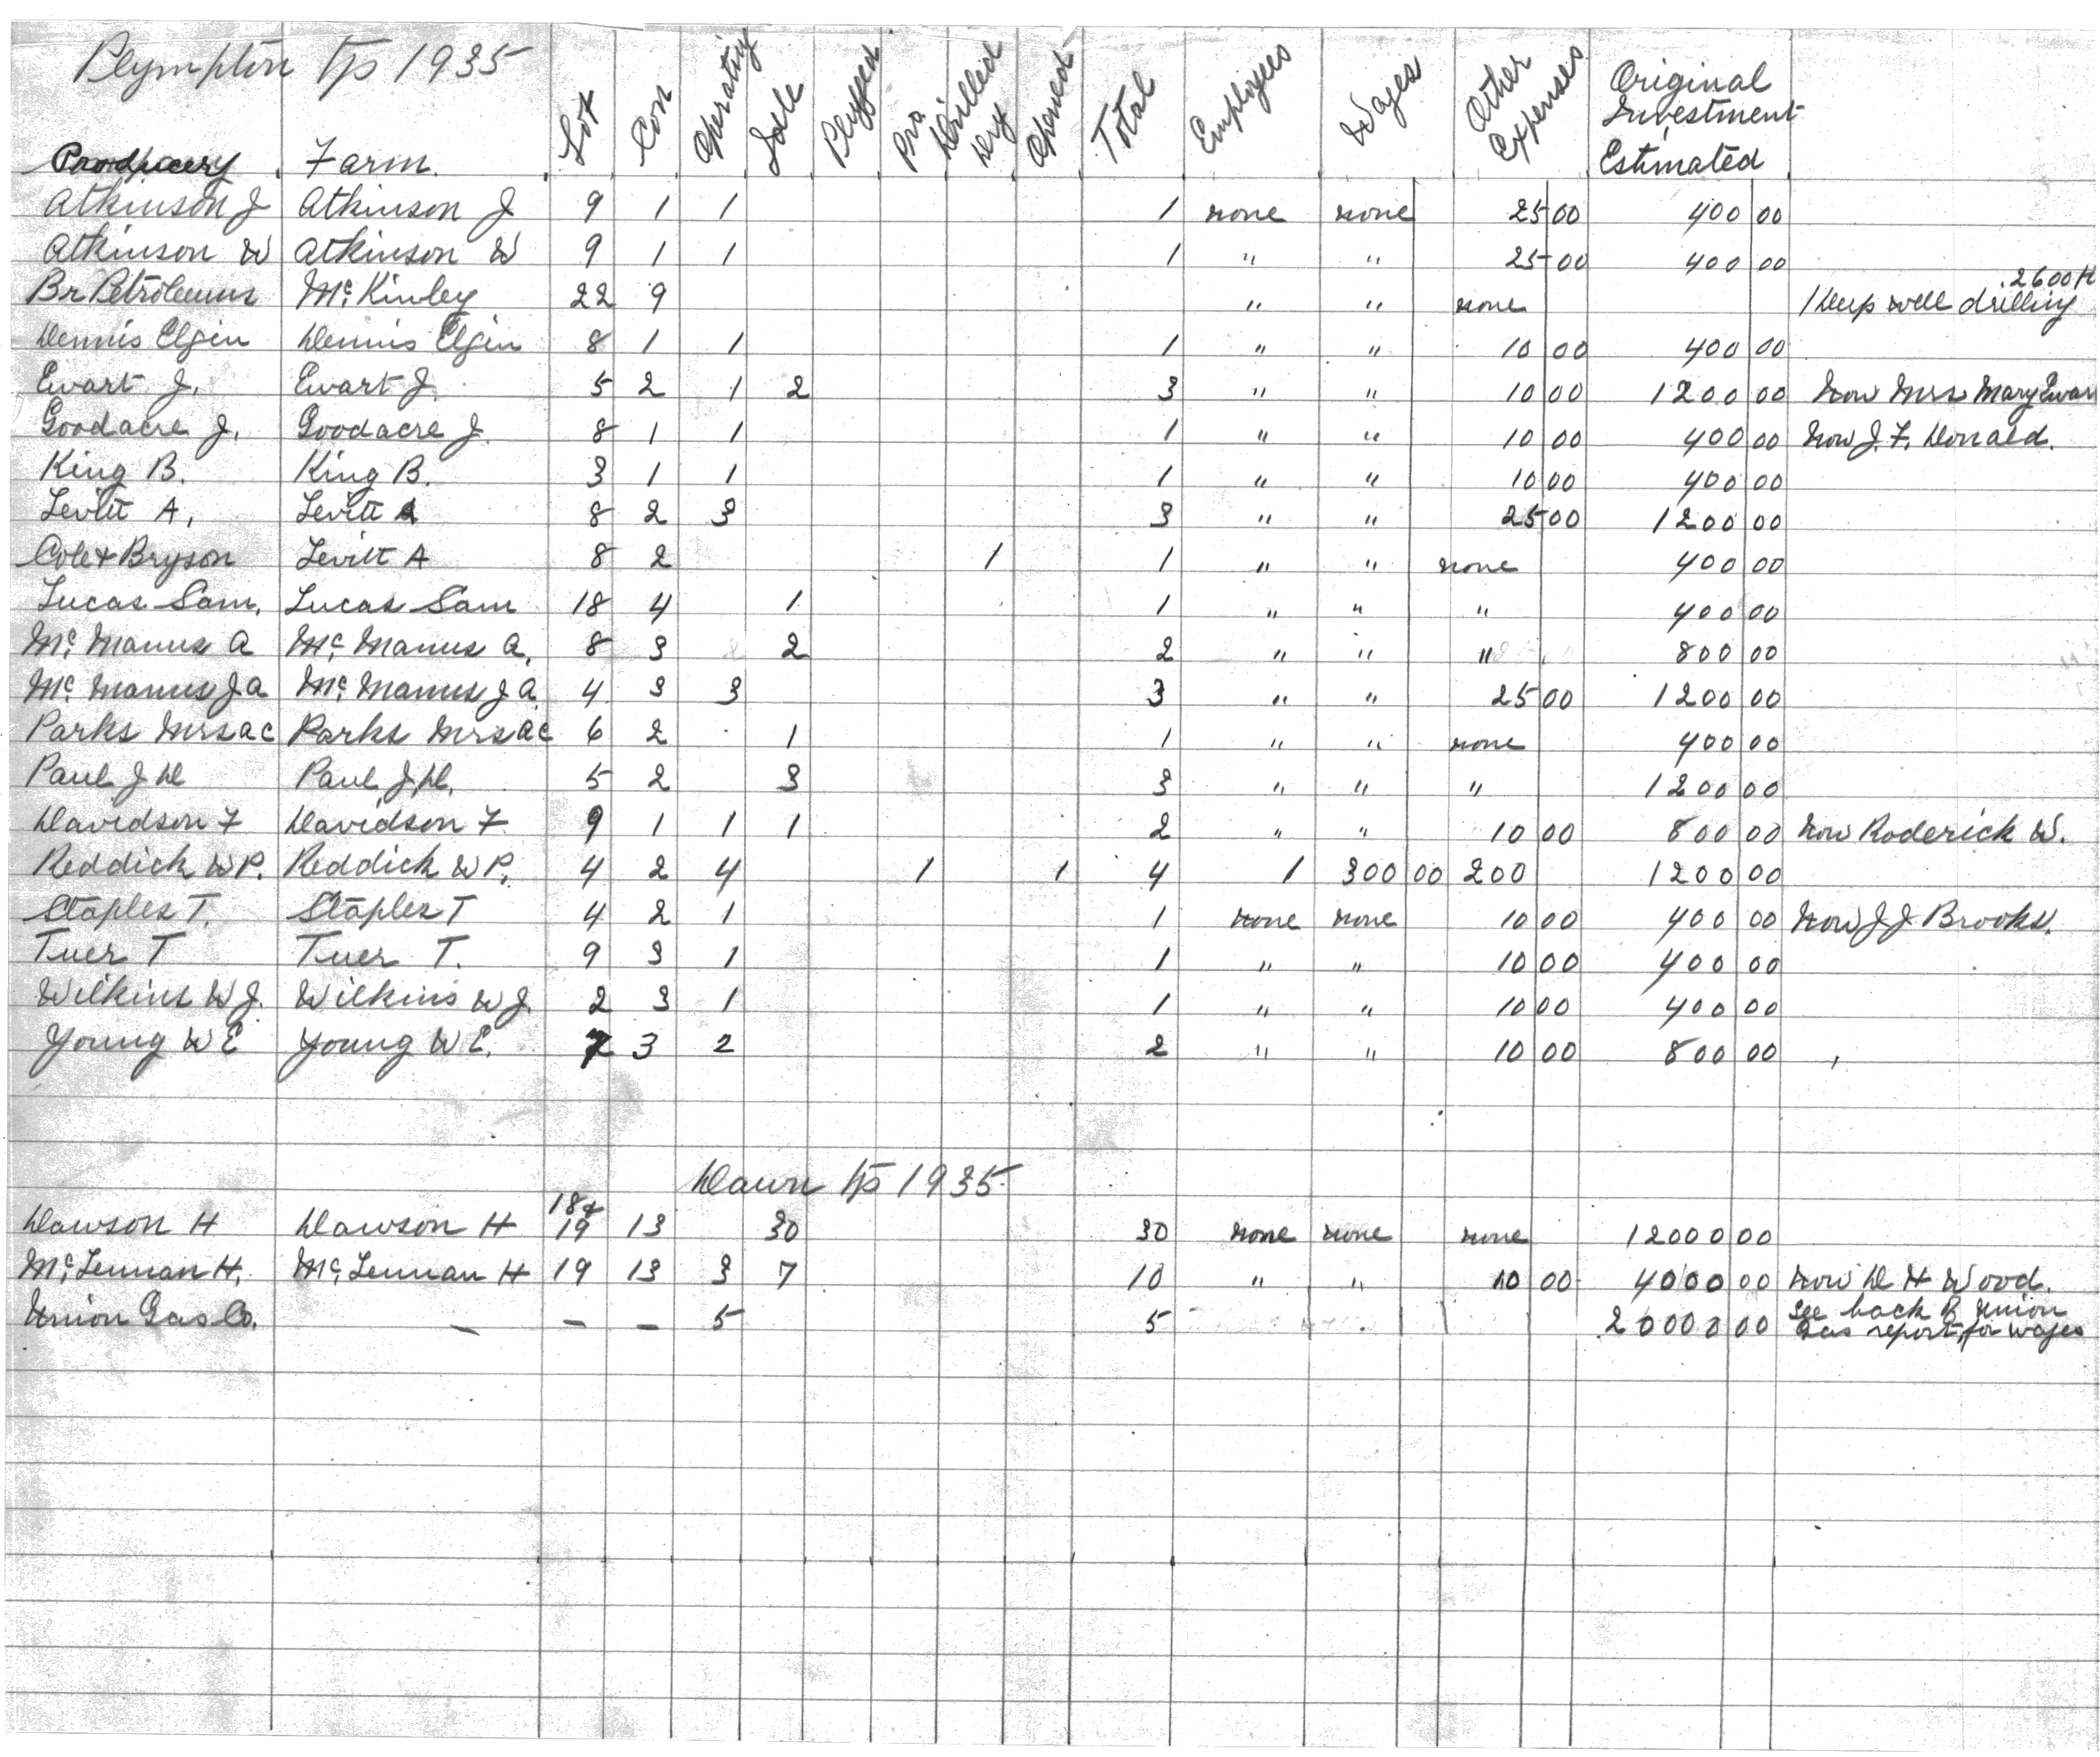 Plympton Tp 1935
Producers Farm. Lot Con Operating Idle Plugged Pro Drilled Dry Opened Total Employees Wages Other Expenses Original Investment Estimated
Atkinson J Atkinson J 9 1 1 1 none none 25 00 400 00
Atkinson W Atkinson W 9 1 1 1 " " 25 00 400 00
Br Petroleums McKinley 22 9 " " none 1 Deep well drilling 2600 ft
Dennis Elgin Dennis Elgin 8 1 1 1 " " 10 00 400 00
Ewart J. Ewart J. 5 2 1 2 3 " " 10 00 1200 00 Now Mrs Mary Ewart
Goodacre J. Goodacre J. 8 1 1 1 " " 10 00 400 00 Now J. F. Donald.
King B. King B. 3 1 1 1 " " 10 00 400 00
Levitt A. Levitt A 8 2 3 3 " " 25 00 1200 00
Cole & Bryson Levitt A 8 2 1 1 " " none 400 00
Lucas Sam. Lucas Sam 18 4 1 1 " " " 400 00
Mc Manus A Mc Manus A. 8 3 2 2 " " " 800 00
Mc Manus J A Mc Manus J A. 4 3 3 3 " " 25 00 1200 00
Parks Mrs A C Parks Mrs A C 6 2 1 1 " " none 400 00
Paul J D Paul J. D. 5 2 3 3 " " " 1200 00
Davidson F Davidson F. 9 1 1 1 2 " " 10 00 800 00 Now Roderick W.
Reddick W P. Reddick W P. 4 2 4 1 1 4 1 300 00 200 1200 00
Staples T. Staples T 4 2 1 1 none none 10 00 400 00 Now J J Brooks.
Tuer T Tuer T. 9 3 1 1 " " 10 00 400 00
Wilkins W J. Wilkins W J. 2 3 1 1 " " 10 00 400 00
Young W E Young W E. 7 3 2 2 " " 10 00 800 00
Dawn Tp 1935
Dawson H Dawson H 18 & 19 13 30 30 none none none 12000 00
Mc Lennan H. Mc Lennan H 19 13 3 7 10 " " 10 00 4000 00 Now D H Wood.
Union Gas Co. — — — 5 5 20000 00 See back Union
Gas report for wages